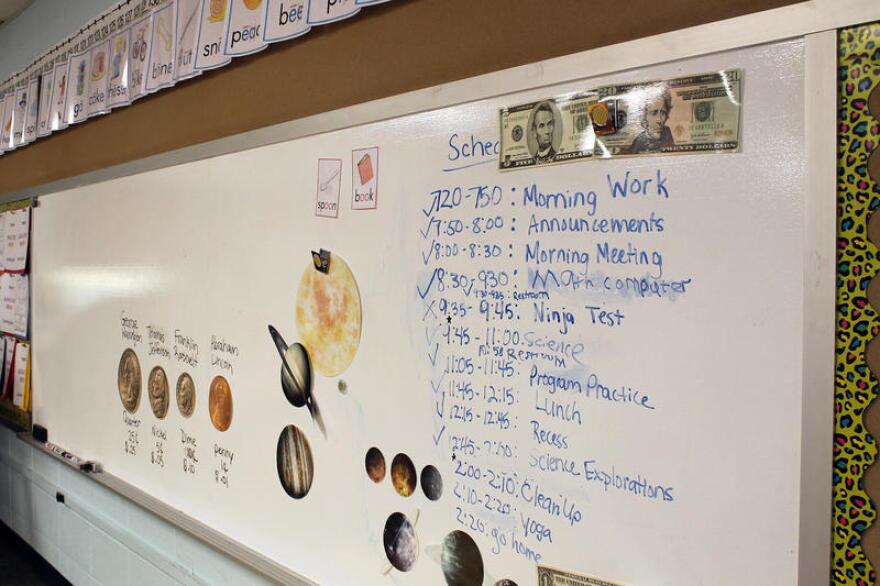 bee
pea
cake
bike
bine
spoon
book
FIVE DOLLARS
20
20
TWENTY DOLLARS
Sche
7:20-7:50: Morning Work
7:50-8:00: Announcements
8:00-8:30: Morning Meeting
8:30-9:30: Math computer
9:30-9:35: Restroom
9:35-9:45: Ninja Test
9:45-11:00: Science
Restroom
11:05-11:45: Program Practice
11:45-12:15: Lunch
12:15-12:45: Recess
Science Explorations
2:00-2:10: Clean Up
2:10-2:20: Yoga
2:20: go home
George
Washington
Quarter
25¢
$.25
Thomas
Jefferson
Nickel
5¢
$.05
Franklin
Roosevelt
Dime
10¢
$.10
Abraham
Lincoln
penny
1¢
$.01